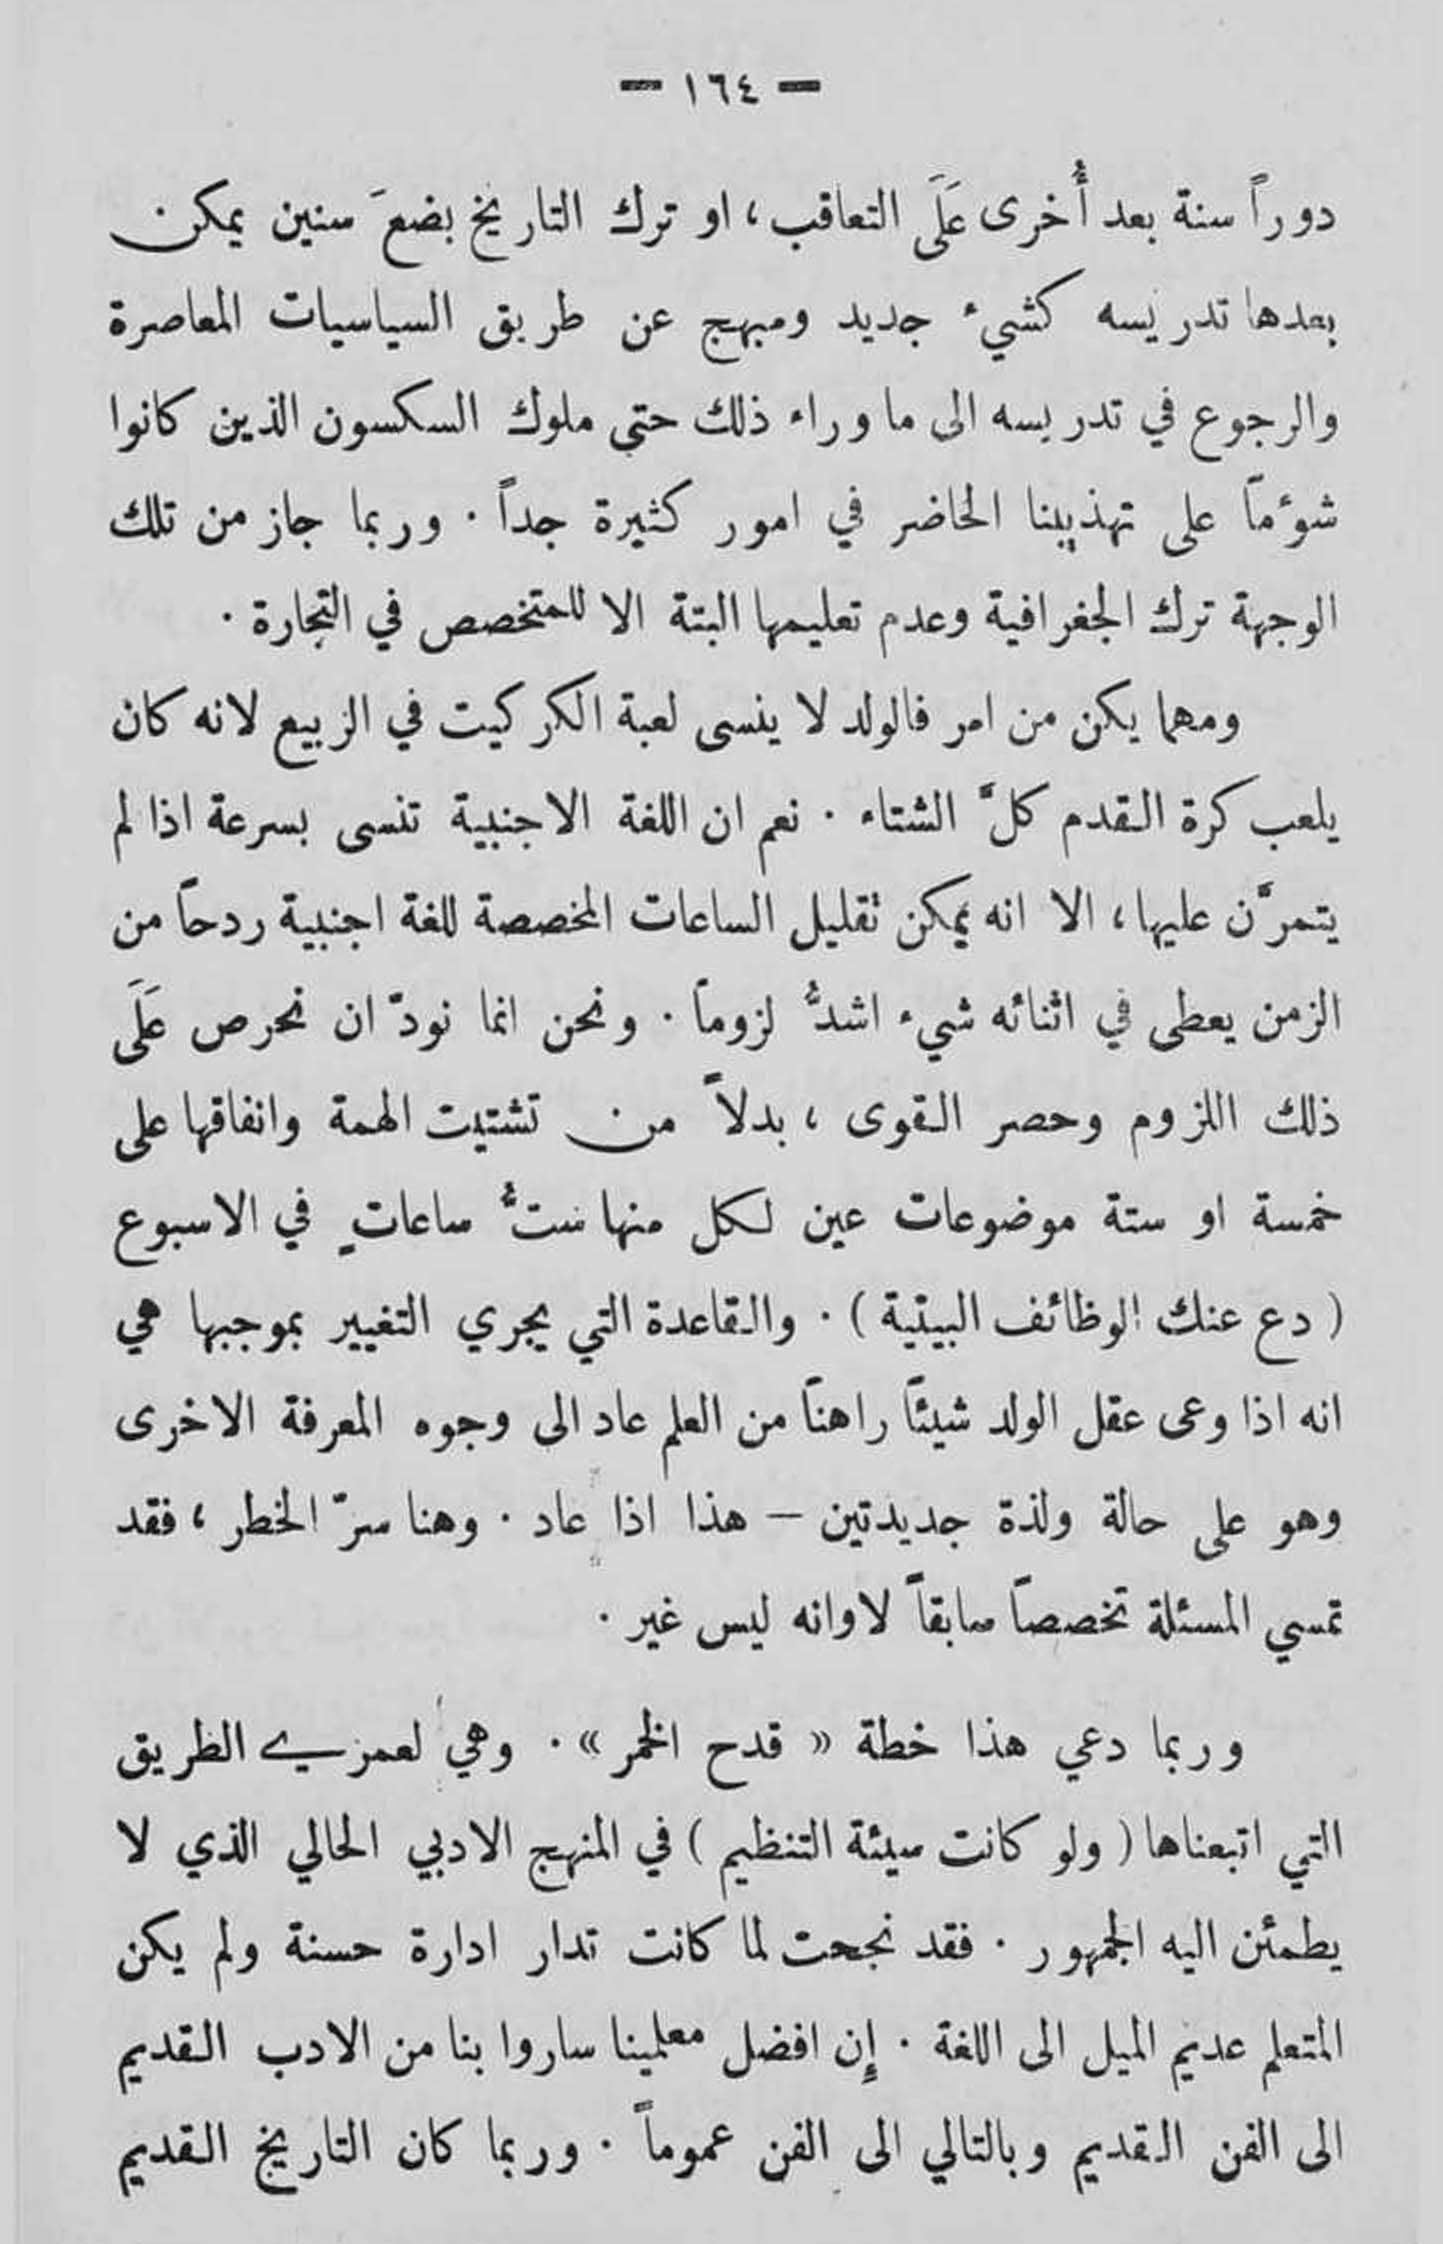 — ١٦٤ —
دوراً سنة بعد أُخرى عَلَى التعاقب، او ترك التاريخ بضعَ سنين يمكن
بعدها تدريسه كشيء جديد ومبهج عن طريق السياسيات المعاصرة
والرجوع في تدريسه الى ما وراء ذلك حتى ملوك السكسون الذين كانوا
شوءماً على تهذيبنا الحاضر في امور كثيرة جداً . وربما جاز من تلك
الوجهة ترك الجغرافية وعدم تعليمها البتة الا للمتخصص في التجارة .
ومهما يكن من امر فالولد لا ينسى لعبة الكركيت في الربيع لانه كان
يلعب كرة القدم كلَّ الشتاء . نعم ان اللغة الاجنبية تنسى بسرعة اذا لم
يتمرَّن عليها، الا انه يمكن تقليل الساعات المخصصة للغة اجنبية ردحاً من
الزمن يعطى في اثنائه شيء اشدُّ لزوماً . ونحن انما نودّ ان نحرص عَلَى
ذلك اللزوم وحصر القوى ، بدلاً من تشتيت الهمة وانفاقها على
خمسة او ستة موضوعات عين لكل منها ستُّ ساعاتٍ في الاسبوع
( دع عنك الوظائف البيتية ) . والقاعدة التي يجري التغيير بموجبها هي
انه اذا وعى عقل الولد شيئاً راهناً من العلم عاد الى وجوه المعرفة الاخرى
وهو على حالة ولذة جديدتين — هذا اذا عاد . وهنا سرّ الخطر ، فقد
تمسي المسئلة تخصصاً سابقاً لاوانه ليس غير .
وربما دعي هذا خطة « قدح الخمر » . وهي لعمري الطريق
التي اتبعناها ( ولو كانت سيئة التنظيم ) في المنهج الادبي الحالي الذي لا
يطمئن اليه الجمهور . فقد نجحت لما كانت تدار ادارة حسنة ولم يكن
المتعلم عديم الميل الى اللغة . إن افضل معلمينا ساروا بنا من الادب القديم
الى الفن القديم وبالتالي الى الفن عموماً . وربما كان التاريخ القديم